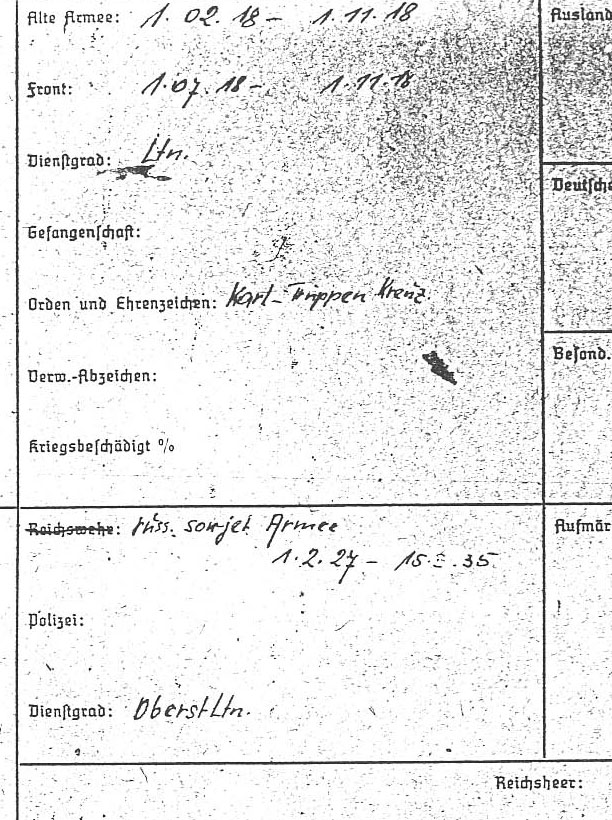 Alte Armee: 1.02.18 - 1.11.18
Front: 1.07.18 - 1.11.18
Dienstgrad: Ltn.
Gefangenschaft:
Orden und Ehrenzeichen: Karl-Truppen Kreuz
Verw.-Abzeichen:
Kriegsbeschädigt %
Reichswehr: russ. sowjet Armee
1.2.27 - 15. .35
Polizei:
Dienstgrad: OberstLtn.
Ausland
Deutsche
Besond.
Aufmär
Reichsheer: